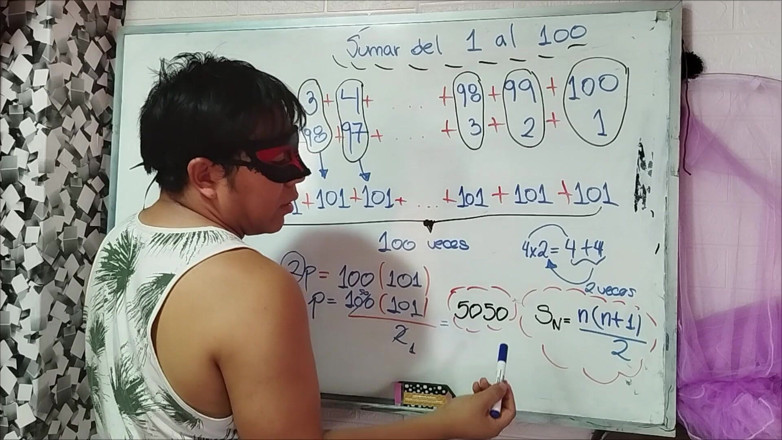 Sumar del 1 al 100
3 + 4 + ..... + 98 + 99 + 100
98 + 97 + ..... + 3 + 2 + 1
1 + 101 + 101 + ..... + 101 + 101 + 101
100 veces
4x2 = 4 + 4
2 veces
2P = 100 (101)
P = 100 (101) / 2 = 5050
50
1
S_N = n(n+1) / 2